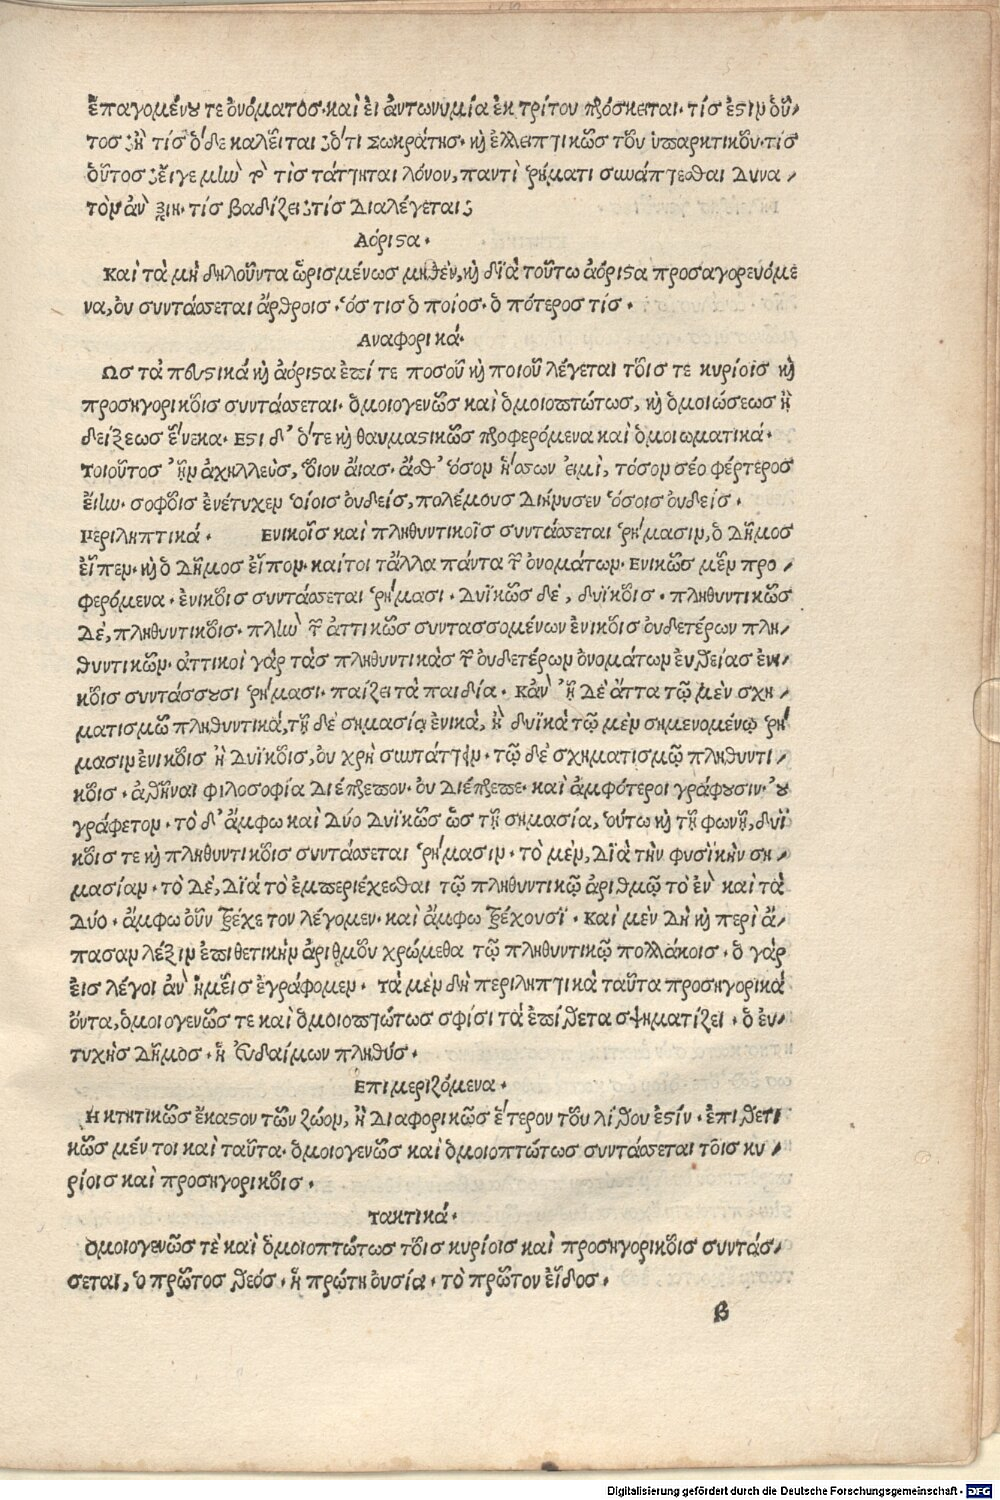 ἐπαγομένου τε ὀνόματος· καὶ εἰ ἀντωνυμία ἐκ τρίτου πρόσκειται· τίς ἐστιν οὗ-
τος; ἢ τίς ὅδε καλεῖται; ὅτι Σωκράτης· καὶ ἐλλειπτικῶς τοῦ ὑπαρκτικοῦ· τίς
οὗτος; εἴγε μὴν τὸ τὶς τάττηται μόνον, παντὶ ῥήματι συνάπτεσθαι δυνα-
τὸν ἂν τίς βαδίζει; τίς διαλέγεται;
Αόριστα·
Καὶ τὰ μὴ δηλοῦντα ὡρισμένως μηθὲν, καὶ διὰ τοῦτω ἀόριστα προσαγορευόμε
να, οὐ συντάσσεται ἄρθροις· ὅς τις ὁ ποίος· ὁ πότερος τίς·
Αναφορικά·
Ως τὰ πευστικά καὶ ἀόριστα ἐπί τε ποσοῦ καὶ ποιοῦ λέγεται τοῖς τε κυρίοις καὶ
προσηγορικοῖς συντάσσεται· ὁμοιογενῶς καὶ ὁμοιοπτώτως, καὶ ὁμοιώσεως ἢ
δείξεως ἕνεκα· Εστι δ' ὅτε καὶ θαυμαστικῶς προφερόμενα καὶ ὁμοιωματικά·
τοιοῦτος ἦν ἀχιλλεὺς, οἷον αἴας· ἀσθ' ὅσον ἥσσων εἰμὶ, τόσον σέο φέρτερος
εἴην· σοφοῖς ἐνέτυχεν οἵοις οὐδείς, πολέμους διήνυσεν ὅσοις οὐδείς·
Περιληπτικά· Ενικοῖς καὶ πληθυντικοῖς συντάσσεται ῥήμασιν, ὁ δῆμος
εἶπεν· καὶ ὁ δῆμος εἶπον· καίτοι τἄλλα πάντα τῶν ὀνομάτων· ενικῶς μὲν προ-
φερόμενα· ἑνικοῖς συντάσσεται ῥήμασι· δυϊκῶς δέ, δυϊκοῖς· πληθυντικῶς
δέ, πληθυντικοῖς· πλὴν τῶν ἀττικῶς συντασσομένων ἑνικοῖς οὐδετέρων πλη-
θυντικῶν· ἀττικοὶ γὰρ τὰς πληθυντικὰς τῶν οὐδετέρων ὀνομάτων εὐθείας ἑνι-
κοῖς συντάσσουσι ῥήμασι· παίζει τὰ παιδία· Κἂν ᾖ δέ ἄττα τῷ μὲν σχη-
ματισμῷ πληθυντικά, τῇ δὲ σημασίᾳ ἑνικά, ἢ δυϊκὰ τῷ μὲν σημενομένῳ ῥή
μασιν ἑνικοῖς ἢ δυϊκοῖς, οὐ χρὴ συντάττειν· τῷ δὲ σχηματισμῷ πληθυντι-
κοῖς· ἀθῆναι φιλοσοφία διέπρεπον· οὐ διέπρεπε· καὶ ἀμφότεροι γράφουσιν· οὐ
γράφετον· τὸ δ' ἄμφω καὶ δύο δυϊκῶς ὡς τῇ σημασία, οὕτω καὶ τῇ φωνῇ, δυϊ
κοῖς τε καὶ πληθυντικοῖς συντάσσεται ῥήμασιν· τὸ μὲν, διὰ τὴν φυσϊκὴν ση-
μασίαν· τὸ δέ, διὰ τὸ ἐμπεριέχεσθαι τῷ πληθυντικῷ ἀριθμῷ τὸ ἓν καὶ τὰ
δύο· ἄμφω οὖν τρέχετον λέγομεν· καὶ ἄμφω τρέχουσϊ· καὶ μὲν δὴ καὶ περὶ ἅ-
πασαν λέξιν ἐπιθετικὴν ἀριθμοῦ χρώμεθα τῷ πληθυντικῷ πολλάκοις· ὁ γὰρ
εἷς λέγοι ἂν ἡμεῖς ἐγράφομεν· τὰ μὲν δὴ περιληπτικὰ ταῦτα προσηγορικὰ
ὄντα, ὁμοιογενῶς τε καὶ ὁμοιοπτώτως σφίσι τὰ ἐπίθετα σχηματίζει· ὁ εὐ-
τυχὴς δῆμος· ἡ εὐδαίμων πληθύς·
Επιμεριζόμενα·
Η κτητικῶς ἕκαστον τῶν ζώον, ἢ διαφορικῶς ἕτερον τοῦ λίθου ἐστίν· ἐπιθετι
κῶς μέν τοι καὶ ταῦτα· ὁμοιογενῶς καὶ ὁμοιοπτώτως συντάσσεται τοῖς κυ-
ρίοις καὶ προσηγορικοῖς·
τακτικά·
ὁμοιογενῶς τὲ καὶ ὁμοιοπτώτως τοῖς κυρίοις καὶ προσηγορικοῖς συντάσ-
σεται, ὁ πρῶτος θεός· ἡ πρώτη οὐσία· τὸ πρῶτον εἶδος·
β
Digitalisierung gefördert durch die Deutsche Forschungsgemeinschaft - DFG